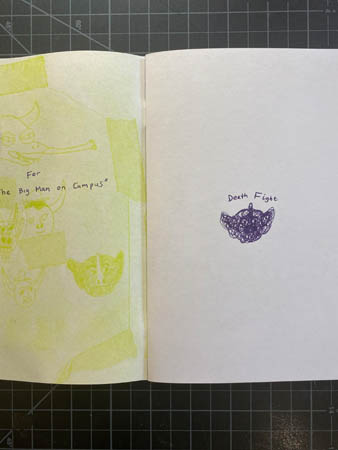 For
he Big Man on Campus"
Death Fight